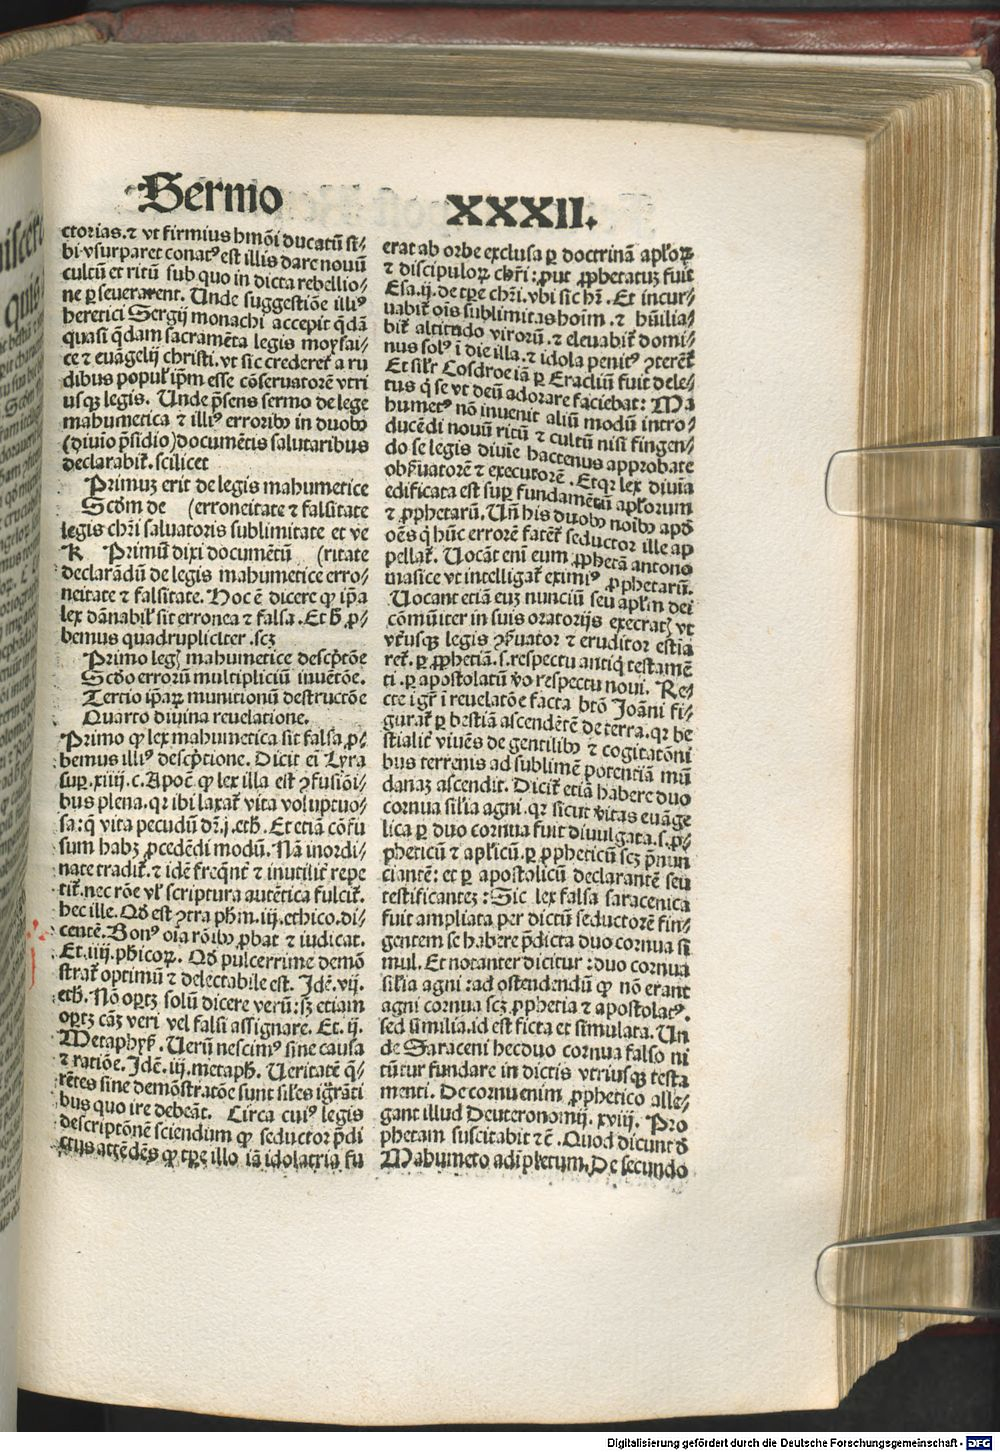 Sermo XXXII.
ctorias. ⁊ vt firmius hmōi ducatū si⸗
bi vsurparet conatꝰ est illis dare nouū
cultū et ritū sub quo in dicta rebellio⸗
ne ꝑseuerarent. Unde suggestiōe illiꝰ
heretici Sergij monachi accepit q̄dā
quasi q̄dam sacramēta legis moysai⸗
ce ⁊ euāgelij christi. vt sic crederet᷑ a ru
dibus popul᷑ ip̄m esse cōseruatorē vtri
usqꝫ legis. Unde p̄sens sermo de lege
mahumetica ⁊ illiꝰ erroribꝰ in duobꝰ
(diuīo p̄sidio) documētis salutaribus
declarabit᷑. scilicet
Primuꝫ erit de legis mahumetice
Scd̄m de (erroneitate ⁊ falsitate
legis chr̄i saluatoris sublimitate et ve
R Primū dixi documētū (ritate
declarādū de legis mahumetice erro⸗
neitate ⁊ falsitate. Hoc ē dicere ꝙ ip̄a
lex dānabil᷑ sit erronea ⁊ falsa. Et h̄ ꝓ⸗
bemus quadrupliciter. scꝫ
Primo legꝭ mahumetice descp̄tōe
Scd̄o errorū multipliciū inuētōe.
Tertio ip̄aꝝ munitionū destructōe
Quarto diuina reuelatione.
Primo ꝙ lex mahumetica sit falsa ꝓ⸗
bemus illiꝰ descp̄tione. Dicit ei᷑ Lyra
suꝑ. xiiij. c. Apoc̄ ꝙ lex illa est ꝯfusiōi⸗
bus plena. qꝛ ibi laxat᷑ vita voluptuo⸗
sa: q̄ vita pecudū dr̄. j. eth̄. Et etiā cōfu
sum habꝫ ꝓcedēdi modū. Nā inordi⸗
nate tradit᷑. ⁊ idē freq̄nt᷑ ⁊ inutilit᷑ repe
tit᷑. nec rōe vl᷑ scriptura autētica fulcit᷑.
hec ille. Qd̄ est ꝯtra ph̄m. iij. ethico. di⸗
centē. Bonꝰ oīa rōibꝰ ꝓbat ⁊ iudicat.
Et. iiij. ph̄icoꝝ. Qd̄ pulcerrime demō
strat᷑ optimū ⁊ delectabile est. Idē. vij.
eth̄. Nō oꝑtꝫ solū dicere verū: sꝫ etiam
oꝑtꝫ cāꝫ veri vel falsi assignare. Et. ij.
Metaphyꝭ. Uerū nescimꝰ sine causa
⁊ ratiōe. Idē. iij. metaph̄. Ueritatē q̄⸗
rētes sine demōstratōe sunt sil᷑es igr̄āti
bus quo ire debeāt. Circa cuiꝰ legis
descriptōnē sciendum ꝙ seductor p̄di
ctus attēdēs ꝙ tꝑe illo iā idolatria fu
erat ab orbe exclusa ꝑ doctrinā apl᷑oꝝ
⁊ discipuloꝝ chr̄i: ꝓut ꝓphetatuꝫ fuit
Esa. ij. de tꝑe chr̄i. vbi sic hr̄. Et incur⸗
uabit᷑ oīs sublimitas hoīm. ⁊ hūilia⸗
bit᷑ altitudo virorū. ⁊ eleuabit᷑ domi⸗
nus solꝰ ī die illa. ⁊ idola penitꝰ ꝯterēt᷑
Et sil᷑r Cosdroe iā ꝑ Eracliū fuit dele⸗
tus q̇ se vt deū adorare faciebat: Ma
humetꝰ nō inuenit aliū modū intro⸗
ducēdi nouū ritū ⁊ cultū nisi fingen⸗
do se legis diuīe hactenus approbate
obꝭuatorē ⁊ executorē. Et qꝛ lex diuīa
edificata est suꝑ fundamētū apl᷑orum
⁊ ꝓphetarū. Uñ his duobꝰ noībꝰ apd̄
oēs q̇ hūc errorē fatēt᷑ seductor ille ap
pellat᷑. Uocāt enī eum ꝓphetā antono
masice vt intelligat᷑ eximiꝰ ꝓphetarū.
Uocant etiā euꝫ nunciū seu apl᷑m dei
cōmūiter in suis oratorijs execratꝭ vt
vt᷑iusqꝫ legis ꝯẜuator ⁊ eruditor estīa
ret᷑. ꝑ ꝓphetiā. s. respectu antiq̇ testamē
ti. ꝑ apostolatū ꝟo respectu noui. Re⸗
cte igr̄ ī reuelatōe facta btō Joāni fi⸗
gurat᷑ ꝑ bestiā ascendētē de terra. qꝛ be
stialit᷑ viuēs de gentilibꝰ ⁊ cogitatōni
bus terrenis ad sublimē potentiā mū
danaꝫ ascendit. Dicit᷑ etiā habere duo
cornua sil᷑ia agni. qꝛ sicut ꝟitas euāge
lica ꝑ duo cornua fuit diuulgata. s. ꝓ⸗
pheticū ⁊ apl᷑icū. ꝑ ꝓpheticū scꝫ p̄nun
ciantē: et ꝑ apostolicū declarantē seu
testificanteꝫ: Sic lex falsa saracenica
fuit ampliata per dictū seductorē fin⸗
gentem se habere p̄dicta duo cornua si
mul. Et notanter dicitur: duo cornua
sil᷑ia agni: ad ostendendū ꝙ nō erant
agni cornua scꝫ ꝓphetia ⁊ apostolatꝰ.
sed similia. id est ficta et simulata. Un
de Saraceni hec duo cornua falso ni
tūtur fundare in dictis vtriusqꝫ testa
menti. De cornu enim ꝓphetico alle⸗
gant illud Deuteronomij. xviij. Pro
phetam suscitabit ⁊c̄. Quod dicunt d̄
Mahumeto adīpletum. De secundo
Digitalisierung gefördert durch die Deutsche Forschungsgemeinschaft - DFG